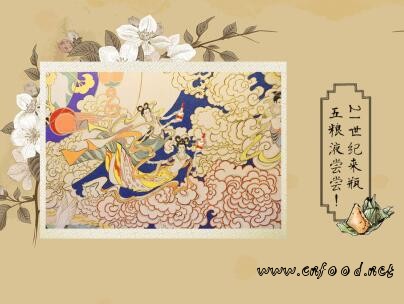 21世纪来瓶
五粮液尝尝！
www.cnfood.net